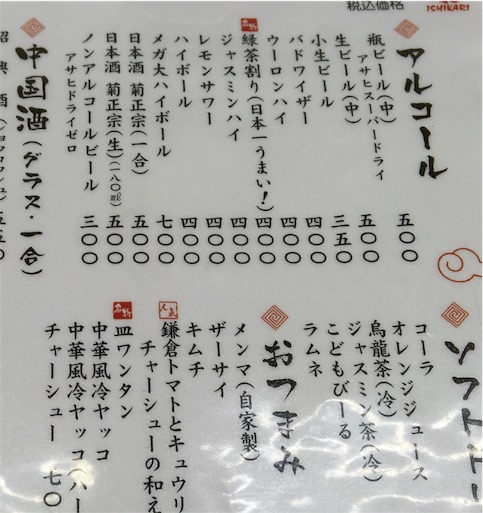 税込価格
ISHIKARI
アルコール
瓶ビール(中) 五〇〇
アサヒスーパードライ
生ビール(中) 五〇〇
小生ビール 三五〇
バドワイザー 四〇〇
ウーロンハイ 四〇〇
名物
緑茶割り(日本一うまい!) 四〇〇
ジャスミンハイ 四〇〇
レモンサワー 四〇〇
ハイボール 四〇〇
メガ大ハイボール 七〇〇
日本酒 菊正宗(一合) 五〇〇
日本酒 菊正宗(生)(一八〇㎖) 五〇〇
ノンアルコールビール 三〇〇
アサヒドライゼロ
中国酒(グラス・一合)
五五〇
ソフトド
コーラ
オレンジジュース
烏龍茶(冷)
ジャスミン茶(冷)
こどもびーる
ラムネ
おつまみ
メンマ(自家製)
ザーサイ
キムチ
人気
鎌倉トマトとキュウリ
チャーシューの和え
名物
皿ワンタン
中華風冷ヤッコ
中華風冷ヤッコ(ハー
チャーシュー 七〇